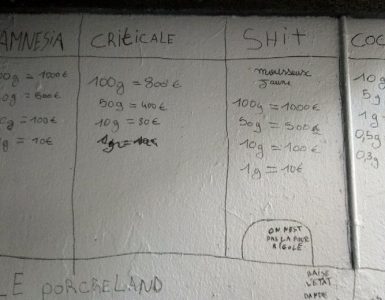 AMNESIA
00g = 1000€
0g = 500€
0g = 100€
g = 10€
CRITICALE
100g = 800€
50g = 400€
10g = 80€
1g = 10€
SHIT
mousseux
jaune
100g = 1000€
50g = 500€
10g = 100€
1g = 10€
ON N'EST
PAS LA POUR
RIGOLÉ
COC
10g
5g
1g
0,5g
0,3g
LE PORCHELAND
BAISE
L'ETAT